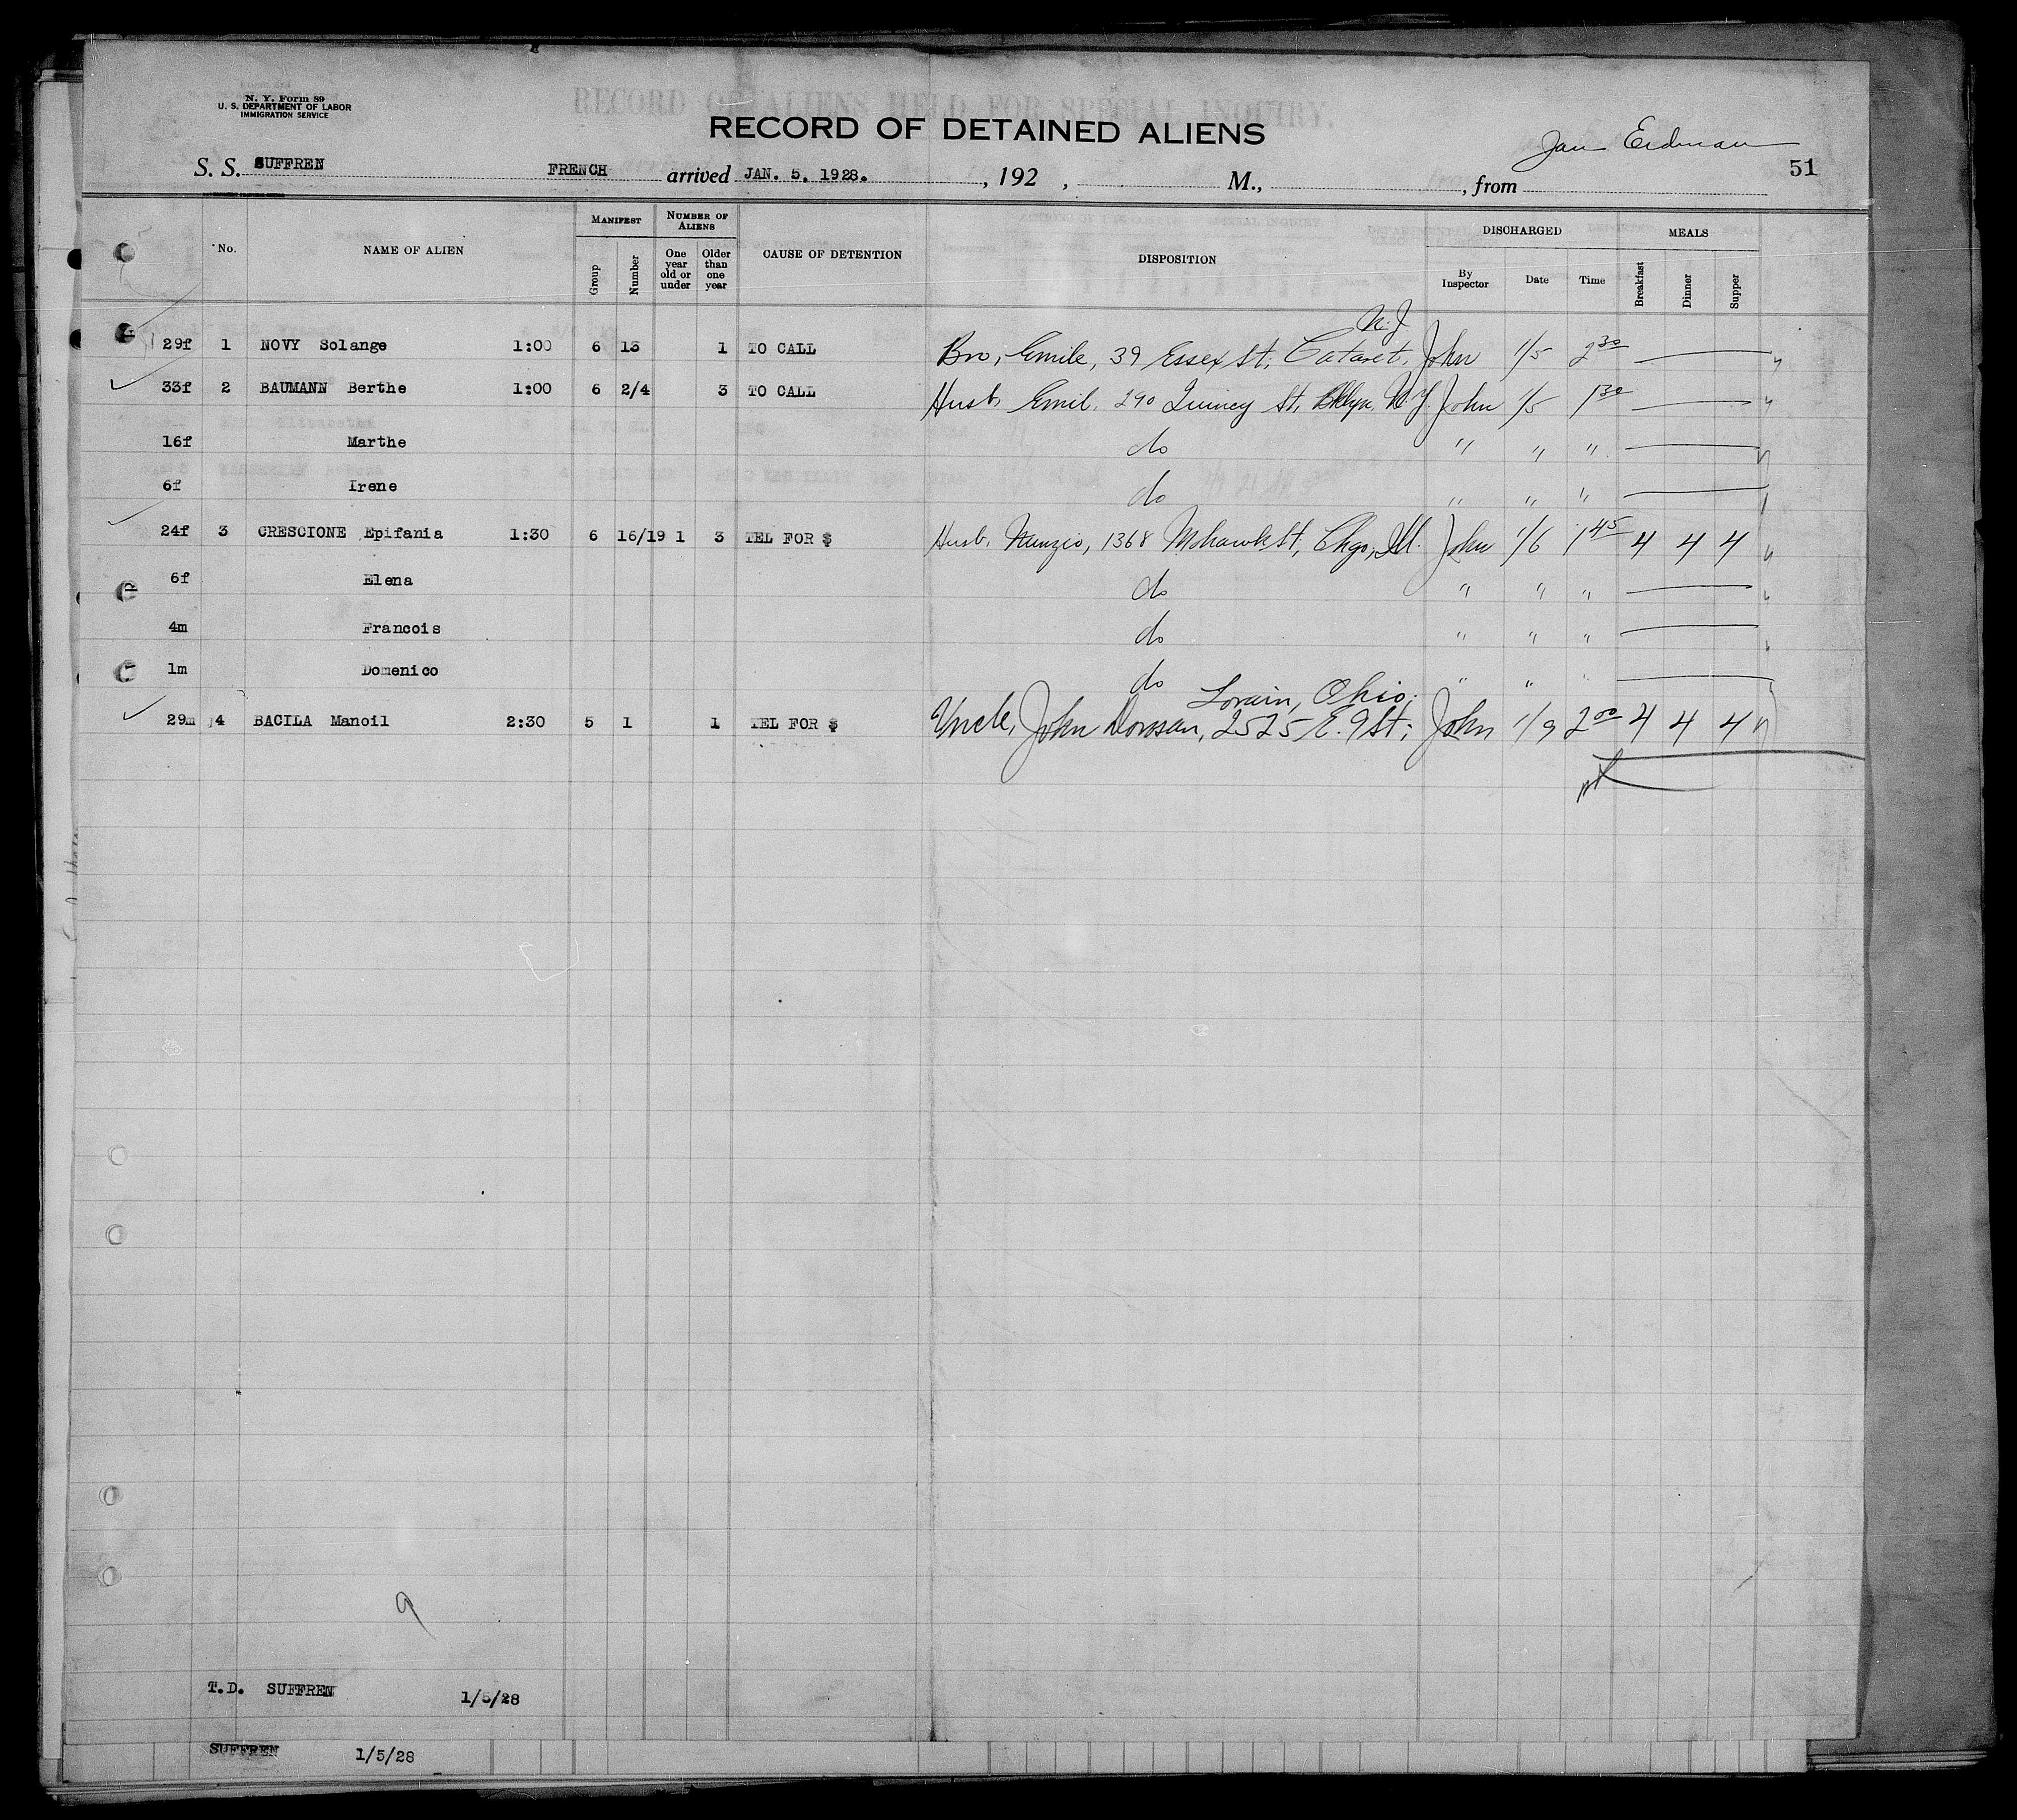 N. Y. Form 89
U. S. DEPARTMENT OF LABOR
IMMIGRATION SERVICE
RECORD OF ALIENS HELD FOR SPECIAL INQUIRY.
RECORD OF DETAINED ALIENS
Jan Erdman
S. S. SUFFREN FRENCH arrived JAN. 5. 1928. , 192 , M., , from 51
No. NAME OF ALIEN MANIFEST Group Number NUMBER OF ALIENS One year old or under Older than one year CAUSE OF DETENTION DISPOSITION DISCHARGED By Inspector Date Time MEALS Breakfast Dinner Supper
N.J.
29f 1 NOVY Solange 1:00 6 13 1 TO CALL Bro, Emile, 39 Essex St, Cataret, John 1/5 2 30
33f 2 BAUMANN Berthe 1:00 6 2/4 3 TO CALL Husb, Emil, 290 Quincy St, Bklyn, N.Y. John 1/5 1 30
16f Marthe do " " "
6f Irene do " " "
24f 3 CRESCIONE Epifania 1:30 6 16/19 1 3 TEL FOR $ Husb, Nunzio, 1368 Mohawk St, Chgo, Ill. John 1/6 1 45 4 4 4
6f Elena do " " "
4m Francois do " " "
1m Domenico do " " "
Lorain, Ohio.
29m 4 BACILA Manoil 2:30 5 1 1 TEL FOR $ Uncle, John Dorosan, 2525 E. 9 St; John 1/9 2 00 4 4 4
9
T.D. SUFFREN 1/5/28
SUFFREN 1/5/28